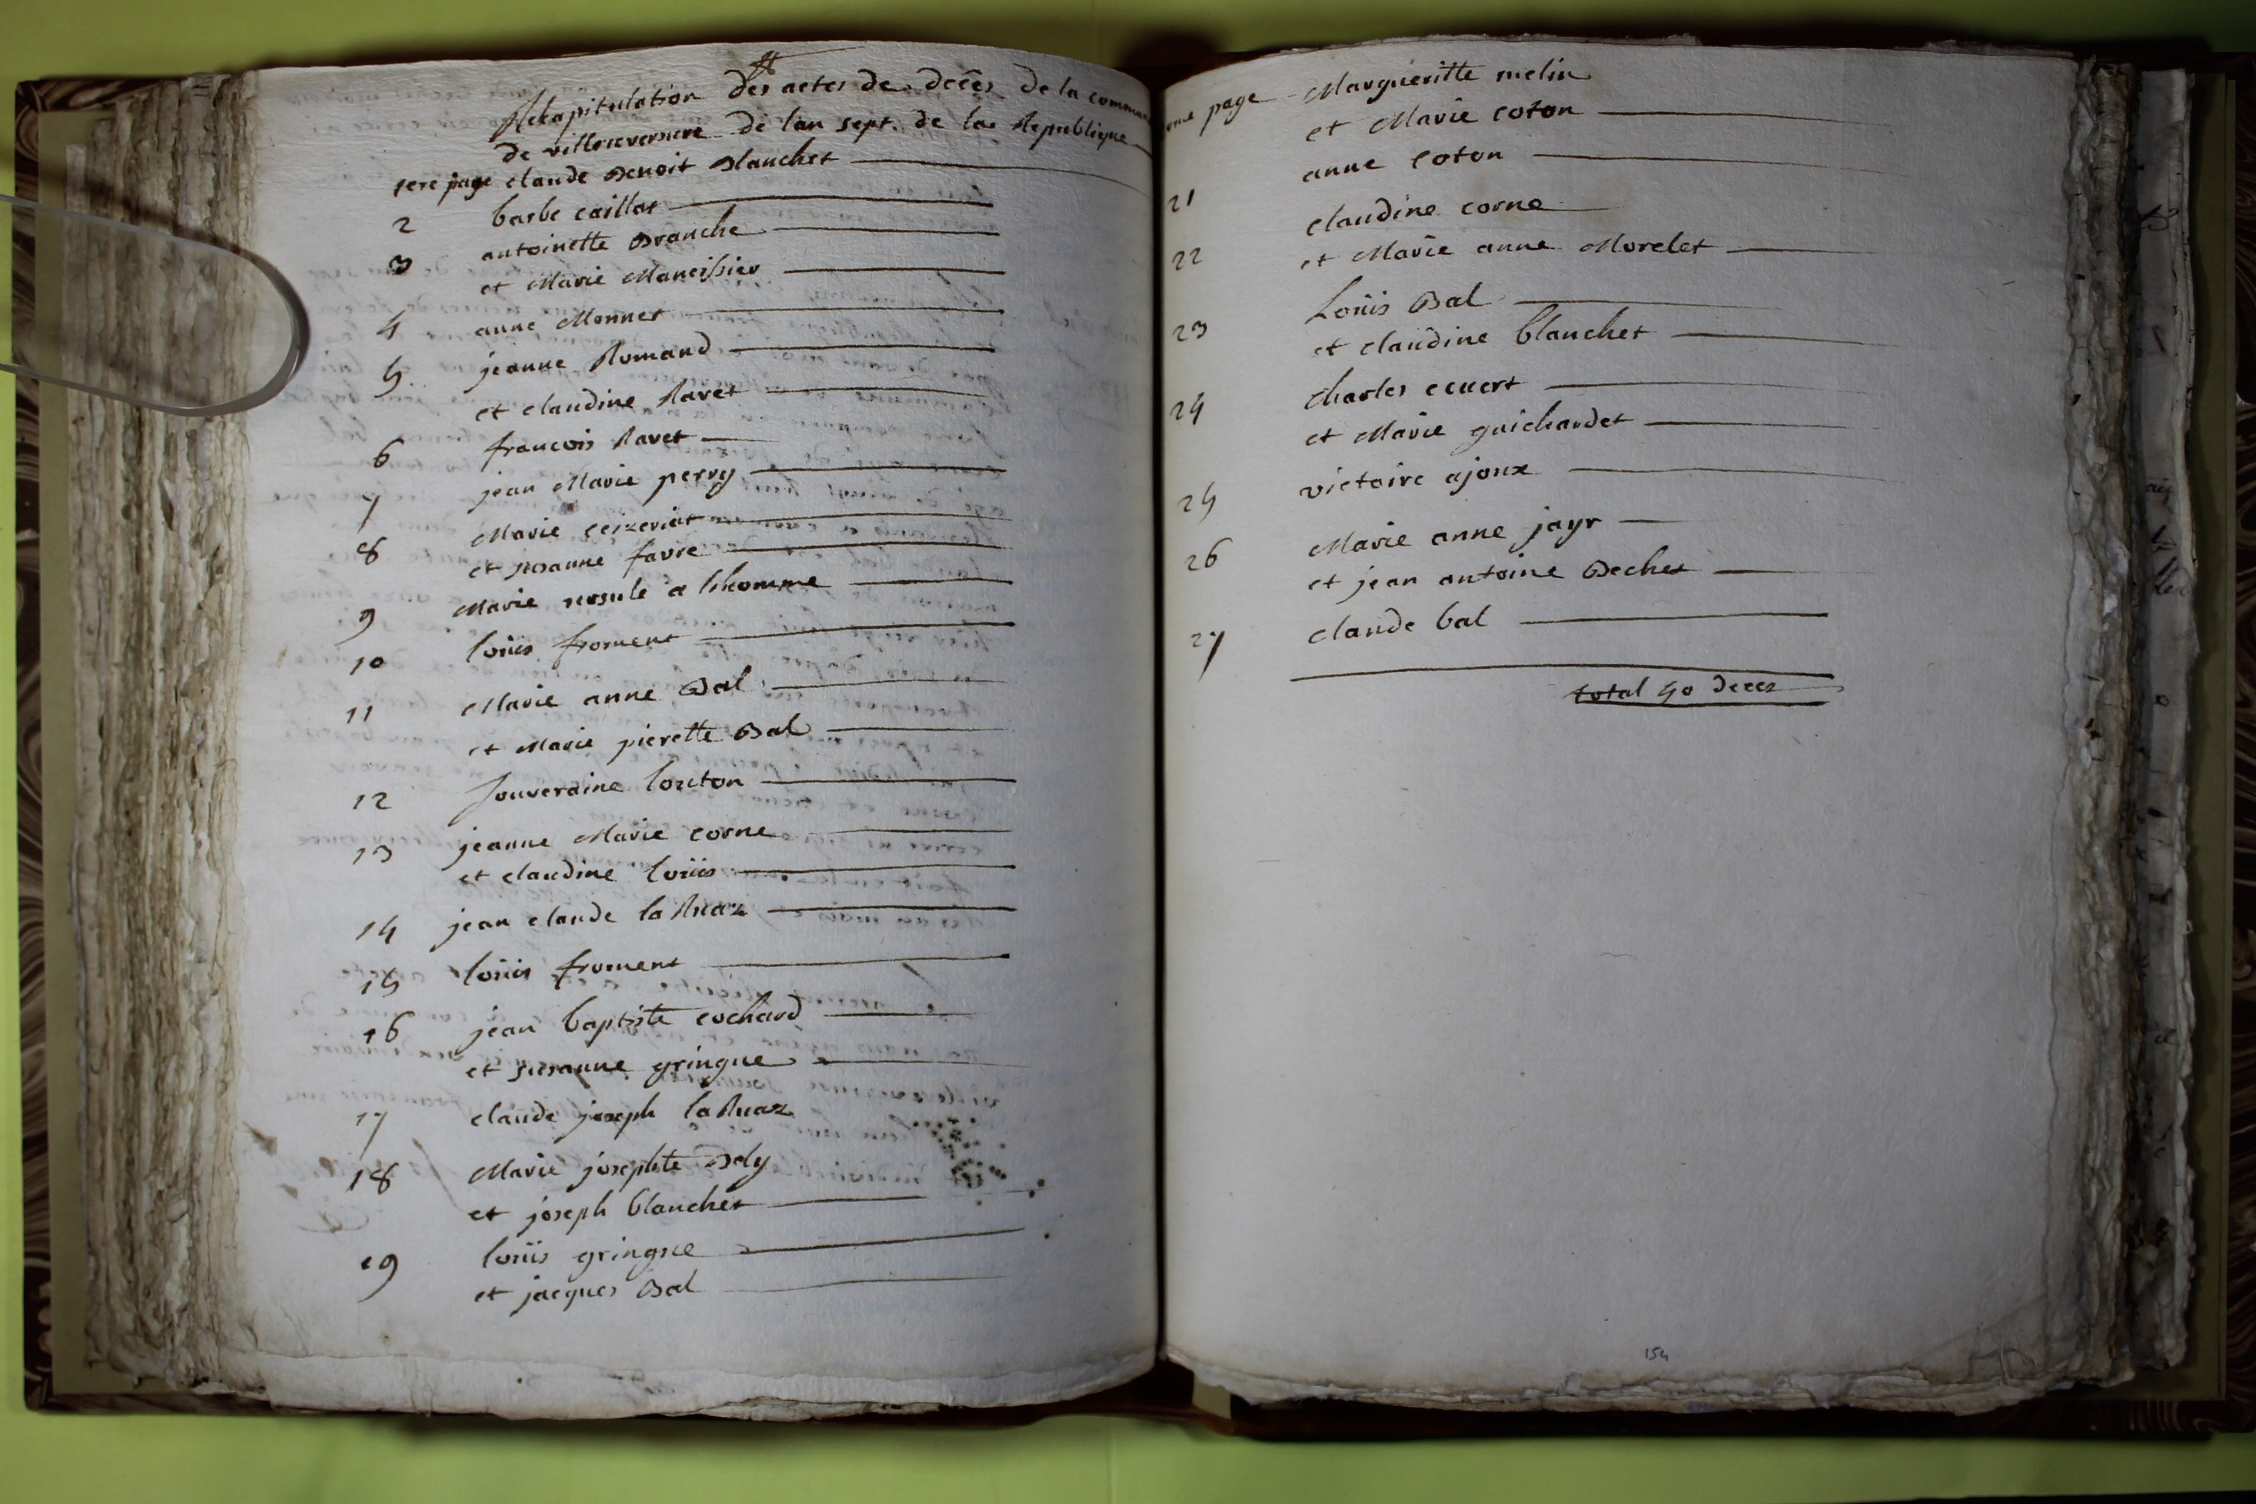 Rekapitulation des actes de décês de la commune
de villereversure de lan sept. de la Republique
1ere page claude Benoit Blanchet
2 barbe caillat
3 antoinette Branche
et Marie Maneissier
4 anne Monnet
5 jeanne Romand
et claudine Ravet
6 francois Ravet
7 jean Marie perry
8 Marie ceizeriat
et susanne favre
9 Marie ursule a lhomme
10 loüis froment
11 Marie anne Bal
et Marie pierette Bal
12 souveraine loriton
13 jeanne Marie corne
et claudine loüis
14 jean claude la Ruaz
15 loüis froment
16 jean baptiste cochard
et susanne gringue
17 claude joseph la Ruaz
18 Marie josephte Bely
et joseph blanchet
19 loüis gringue
et jacques Bal
eme page Margueritte melin
et Marie coton
21 anne coton
22 claudine corne
et Marie anne Morelet
23 Loüis Bal
et claudine blanchet
24 charles ecuert
et Marie guichardet
25 victoire ajoux
26 Marie anne jayr
et jean antoine Bechet
27 claude bal
total 40 decez
154